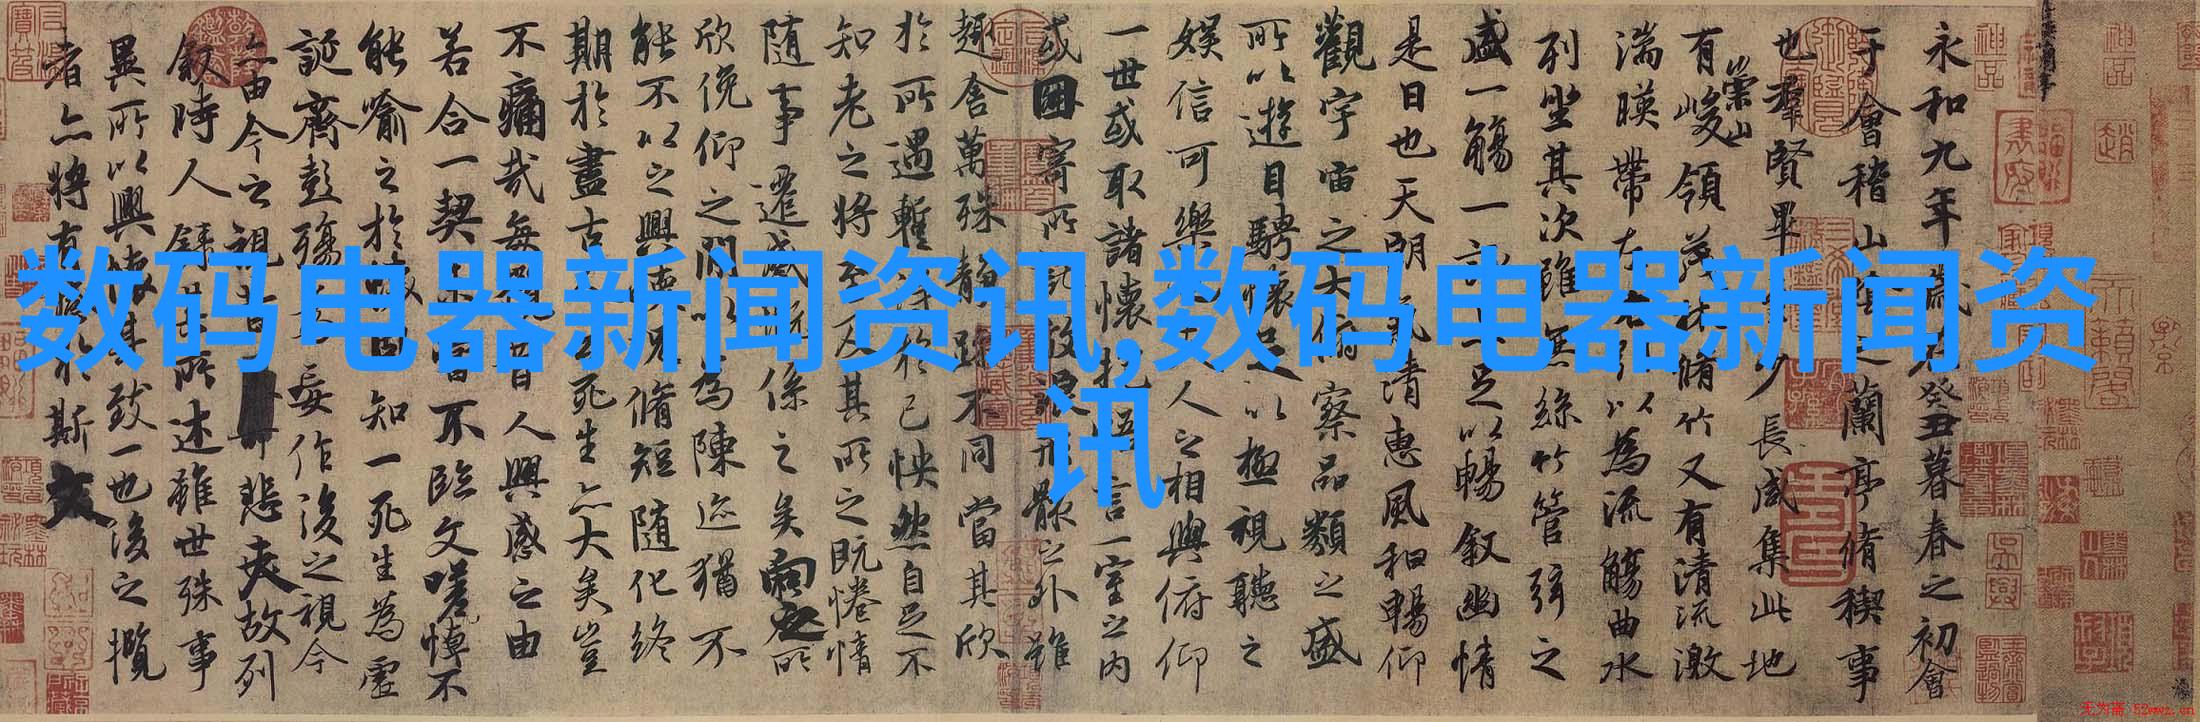 数码电器新闻资讯,数码电器新闻资
讯
永和九年歲在癸丑暮春之初會
于會稽山陰之蘭亭脩稧事
也羣賢畢至少長咸集此地
有崇山峻領茂林脩竹又有清流激
湍暎帶左右引以為流觴曲水
列坐其次雖無絲竹管弦之
盛一觴一詠亦足以暢敘幽情
是日也天朗氣清惠風和暢仰
觀宇宙之大俯察品類之盛
所以遊目騁懷足以極視聽之
娛信可樂也夫人之相與俯仰
一世或取諸懷抱悟言一室之內
或因寄所託放浪形骸之外雖
趣舍萬殊靜躁不同當其欣
於所遇暫得於己怏然自足不
知老之將至及其所之既惓情
隨事遷感慨係之矣向之所
欣俛仰之間以為陳迹猶不
能不以之興懷況脩短隨化終
期於盡古人云死生亦大矣豈
不痛哉每攬昔人興感之由
若合一契未嘗不臨文嗟悼不
能喻之於懷固知一死生為虛
誕齊彭殤為妄作後之視今
亦由今之視昔悲夫故列
敘時人錄其所述雖世殊事
異所以興懷其致一也後之攬
者亦將有感於斯文